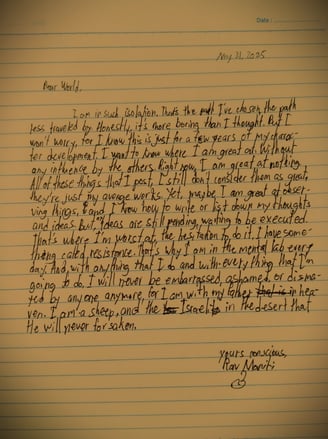 Date :
May 21, 2025
Dear World,
I am in such isolation. That's the path I've chosen, the path
less traveled by. Honestly, it's more boring than I thought. But I
won't worry, for I know this is just for a few years of my charac-
ter development. I want to know where I am great at. Without
any influence by the others. Right now, I am great at nothing.
All of these things that I post, I still don't consider them as great,
they're just my average works. Yet, maybe I am great at obser-
ving things, and I know how to write or list down my thoughts
and ideas. But, ideas are still pending, waiting to be executed.
That's where I'm worst at, the hesitation to do it. I have some-
thing called resistance. That's why I am in the mental lab every
day. And, with anything that I do and with every thing that I'm
going to do, I will never be embarrassed, ashamed, or disma-
yed by anyone anymore, for I am with my father in hea-
ven. I am a sheep, and the Israelite in the desert that
He will never forsaken.
yours conscious,
Rav